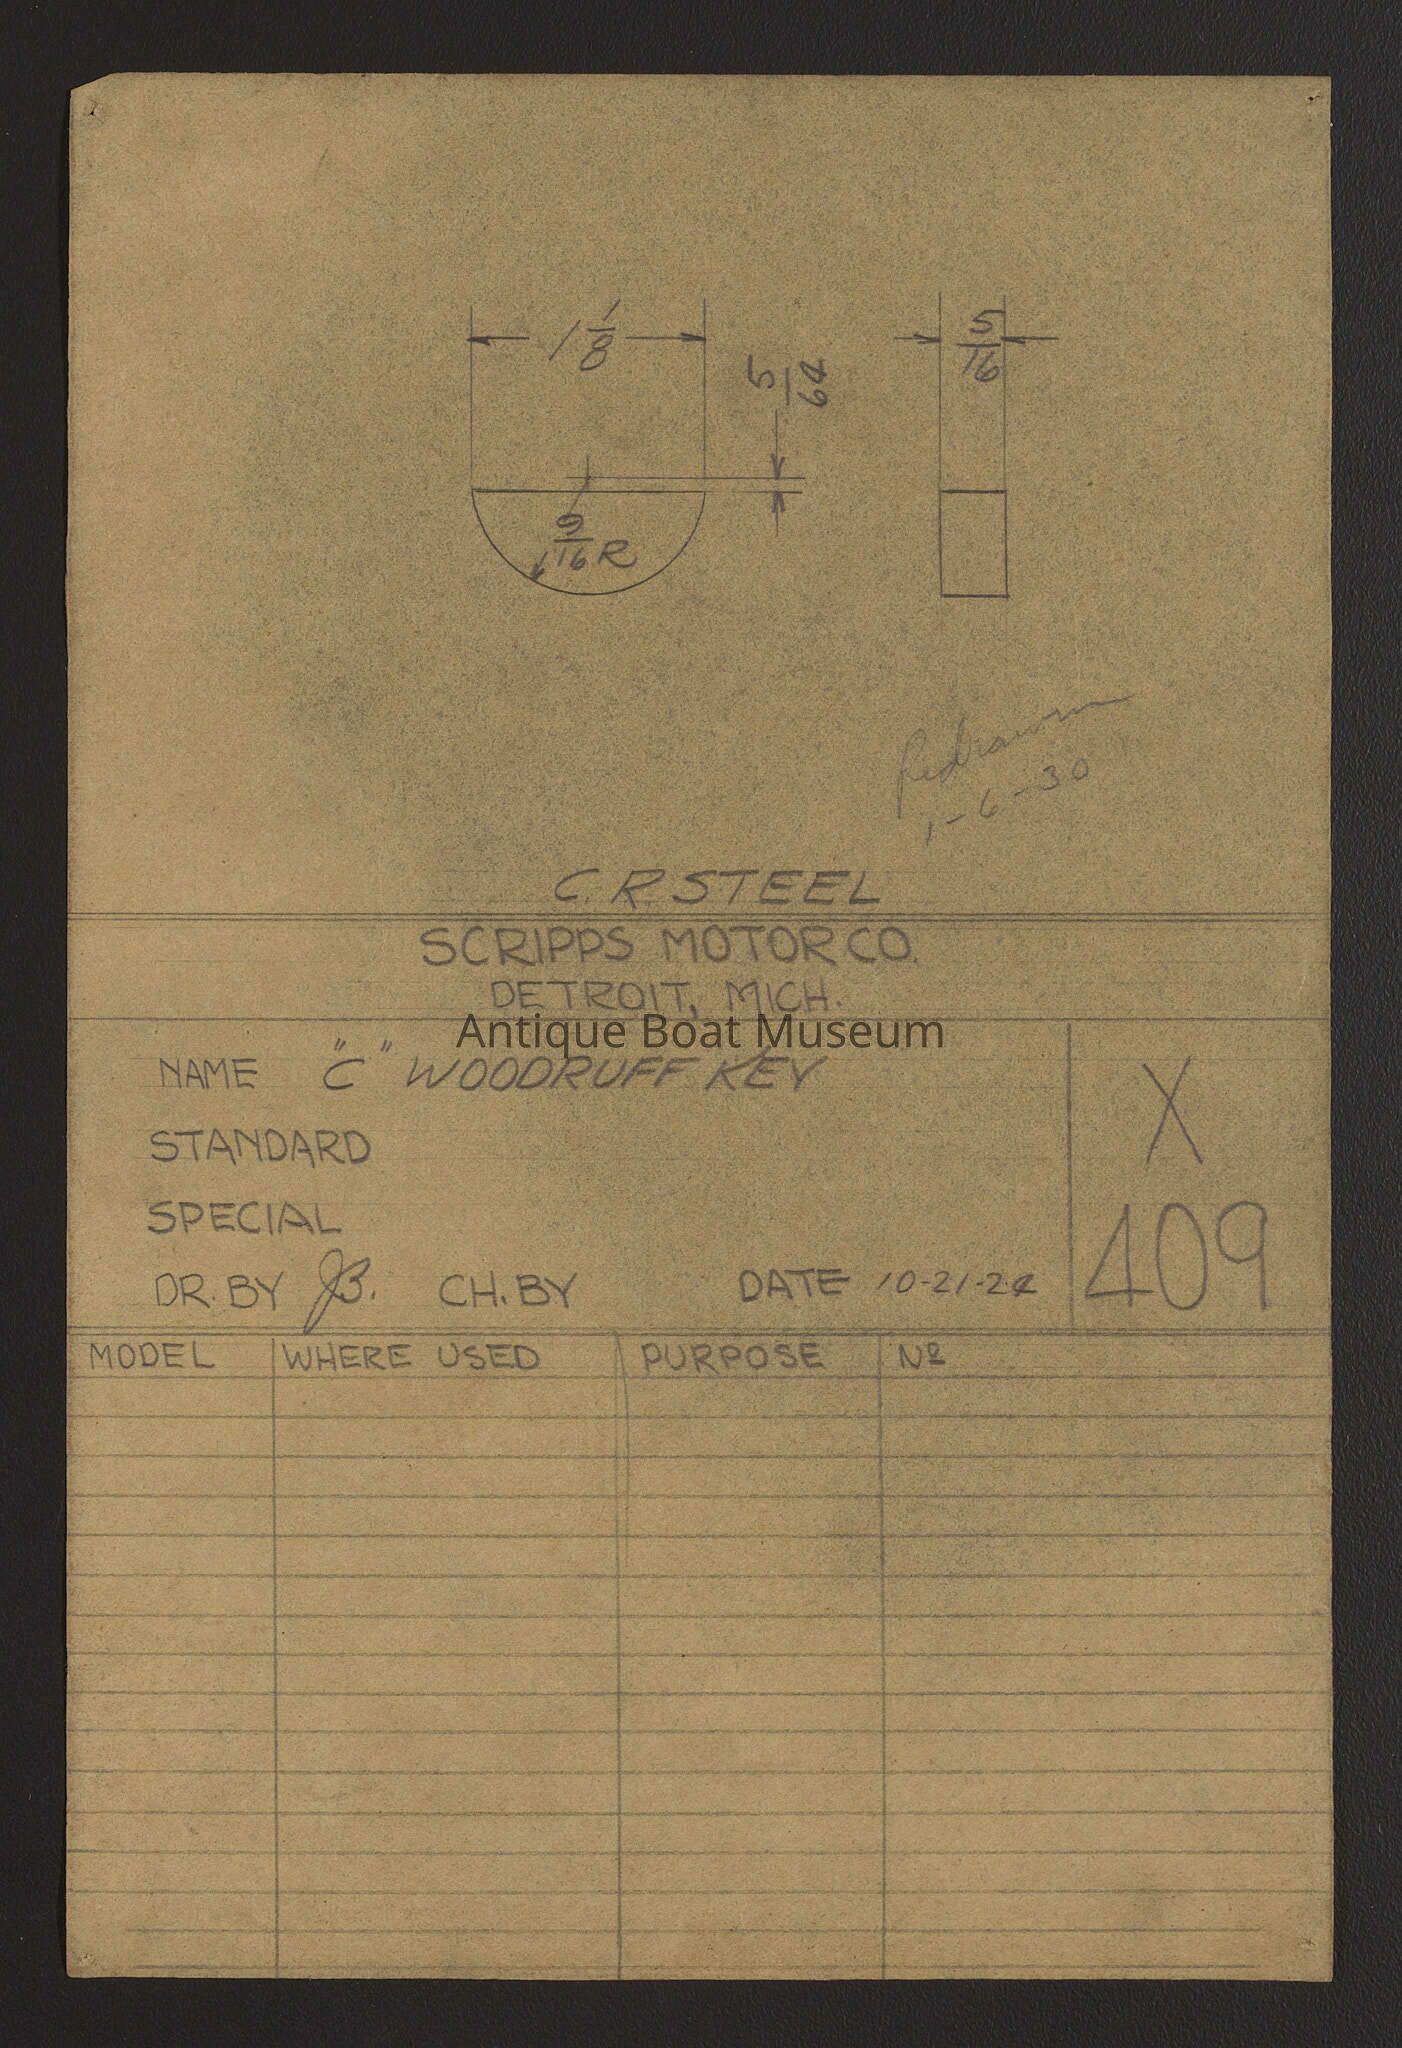 1 1/8
5/16
5/64
9/16 R
Redrawn
1-6-30
C.R. STEEL
SCRIPPS MOTOR CO.
DETROIT, MICH.
Antique Boat Museum
NAME "C" WOODRUFF KEY
X
STANDARD
SPECIAL
409
DR. BY JB. CH. BY DATE 10-21-24
MODEL WHERE USED PURPOSE Nº